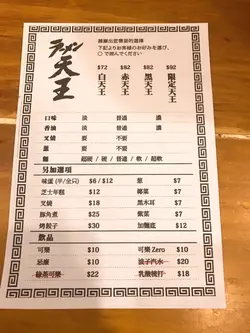 ラーメン天王
請圈出您需要的選擇
下記よりお客様のお好みを選び、
○で囲んでください
$72 $82 $82 $92
白天王 赤天王 黑天王 限定天王
口味 淡 普通 濃
香油 淡 普通 濃
叉燒 要 不要
蔥 要 不要
麵 超硬 / 硬 / 普通 / 軟 / 超軟
另加選項
味蛋 (半/全只) $6 / $12 蔥 $7
芝士年糕 $12 椰菜 $7
叉燒 $18 黑木耳 $7
豚角煮 $25 紫菜 $7
烤餃子 $30 加麵底 $12
飲品
可樂 $10 可樂 Zero $10
忌廉 $10 浪子汽水 $20
綠茶可樂 $22 乳酸梳打 $18